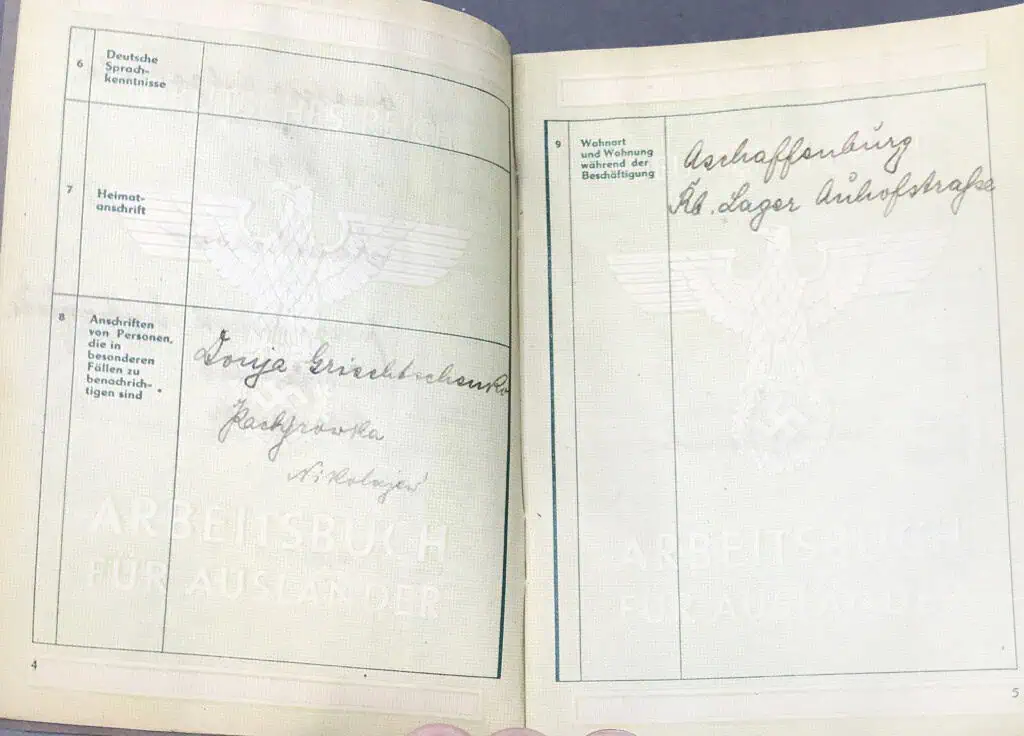 6
Deutsche
Sprach-
kenntnisse
7
Heimat-
anschrift
8
Anschriften
von Personen,
die in
besonderen
Fällen zu
benachrich-
tigen sind
Donja Grischtschenko
Nikolajew
ARBEITSBUCH
FÜR AUSLÄNDER
4
9
Wohnort
und Wohnung
während der
Beschäftigung
Aschaffenburg
Lager Auhofstraße
ARBEITSBUCH
FÜR AUSLÄNDER
5